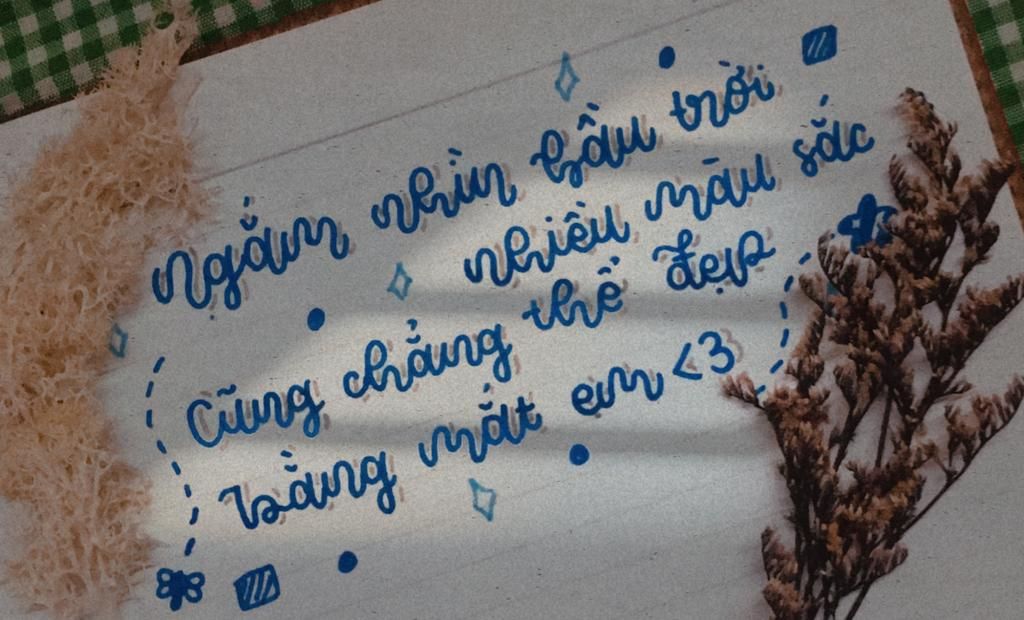 Ngắm nhìn bầu trời
nhiều màu sắc
Cũng chẳng thể đẹp
bằng mắt em <3